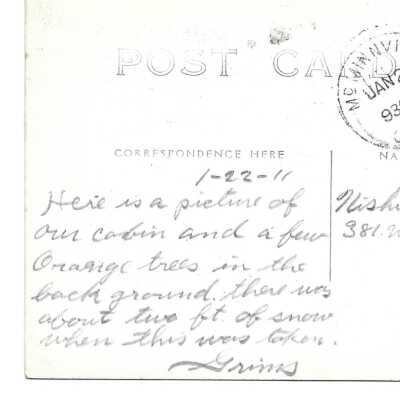 POST CARD
MCMINNVI
JAN 2
930
CORRESPONDENCE HERE
NA
1-22-11
Here is a picture of
our cabin and a few
Orange trees in the
back ground. there was
about two ft. of snow
when this was taken.
Grims
Nishi
381.